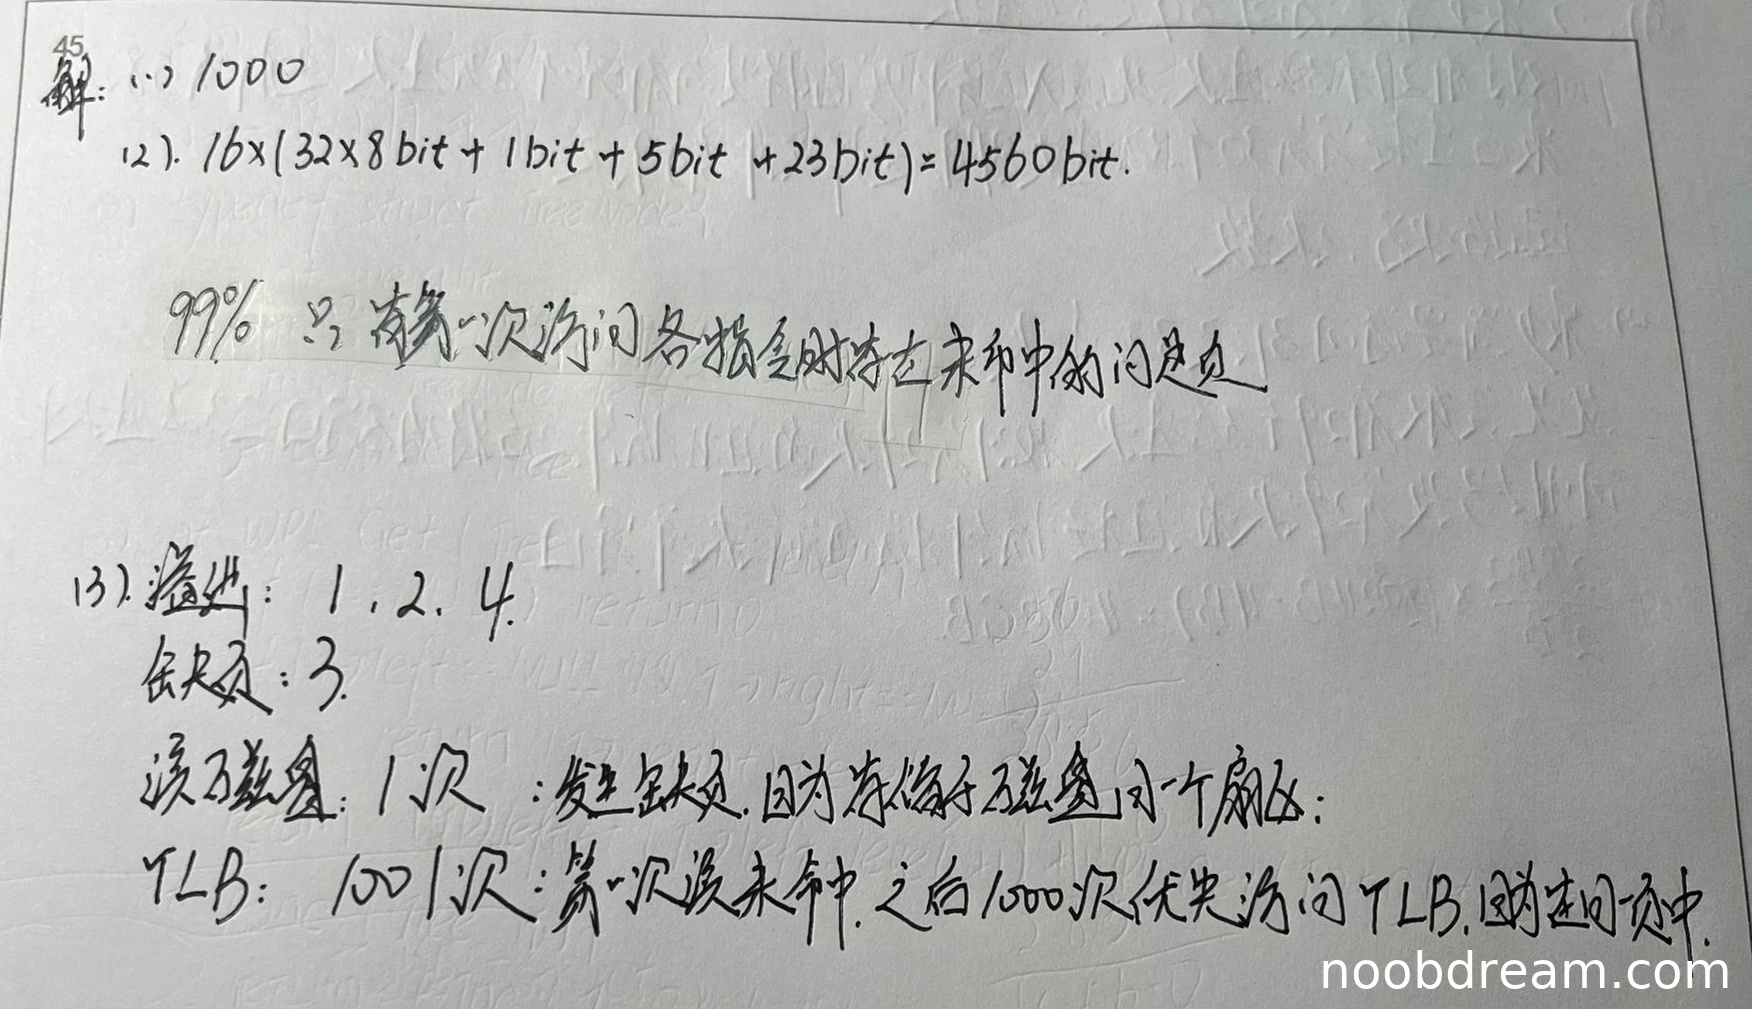 45
解: (1) 1000
(2). 16×(32×8bit + 1bit + 5bit + 23bit) = 4560bit.
99% 只有第一次访问各指令时存在未命中的问题
(3). 溢出: 1、2、4.
缺页: 3.
读磁盘: 1次 : 发生缺页.因为存储于磁盘同一个扇区;
TLB: 1001次: 第一次没未命中.之后1000次优先访问TLB.因为在同一页中.
noobdream.com